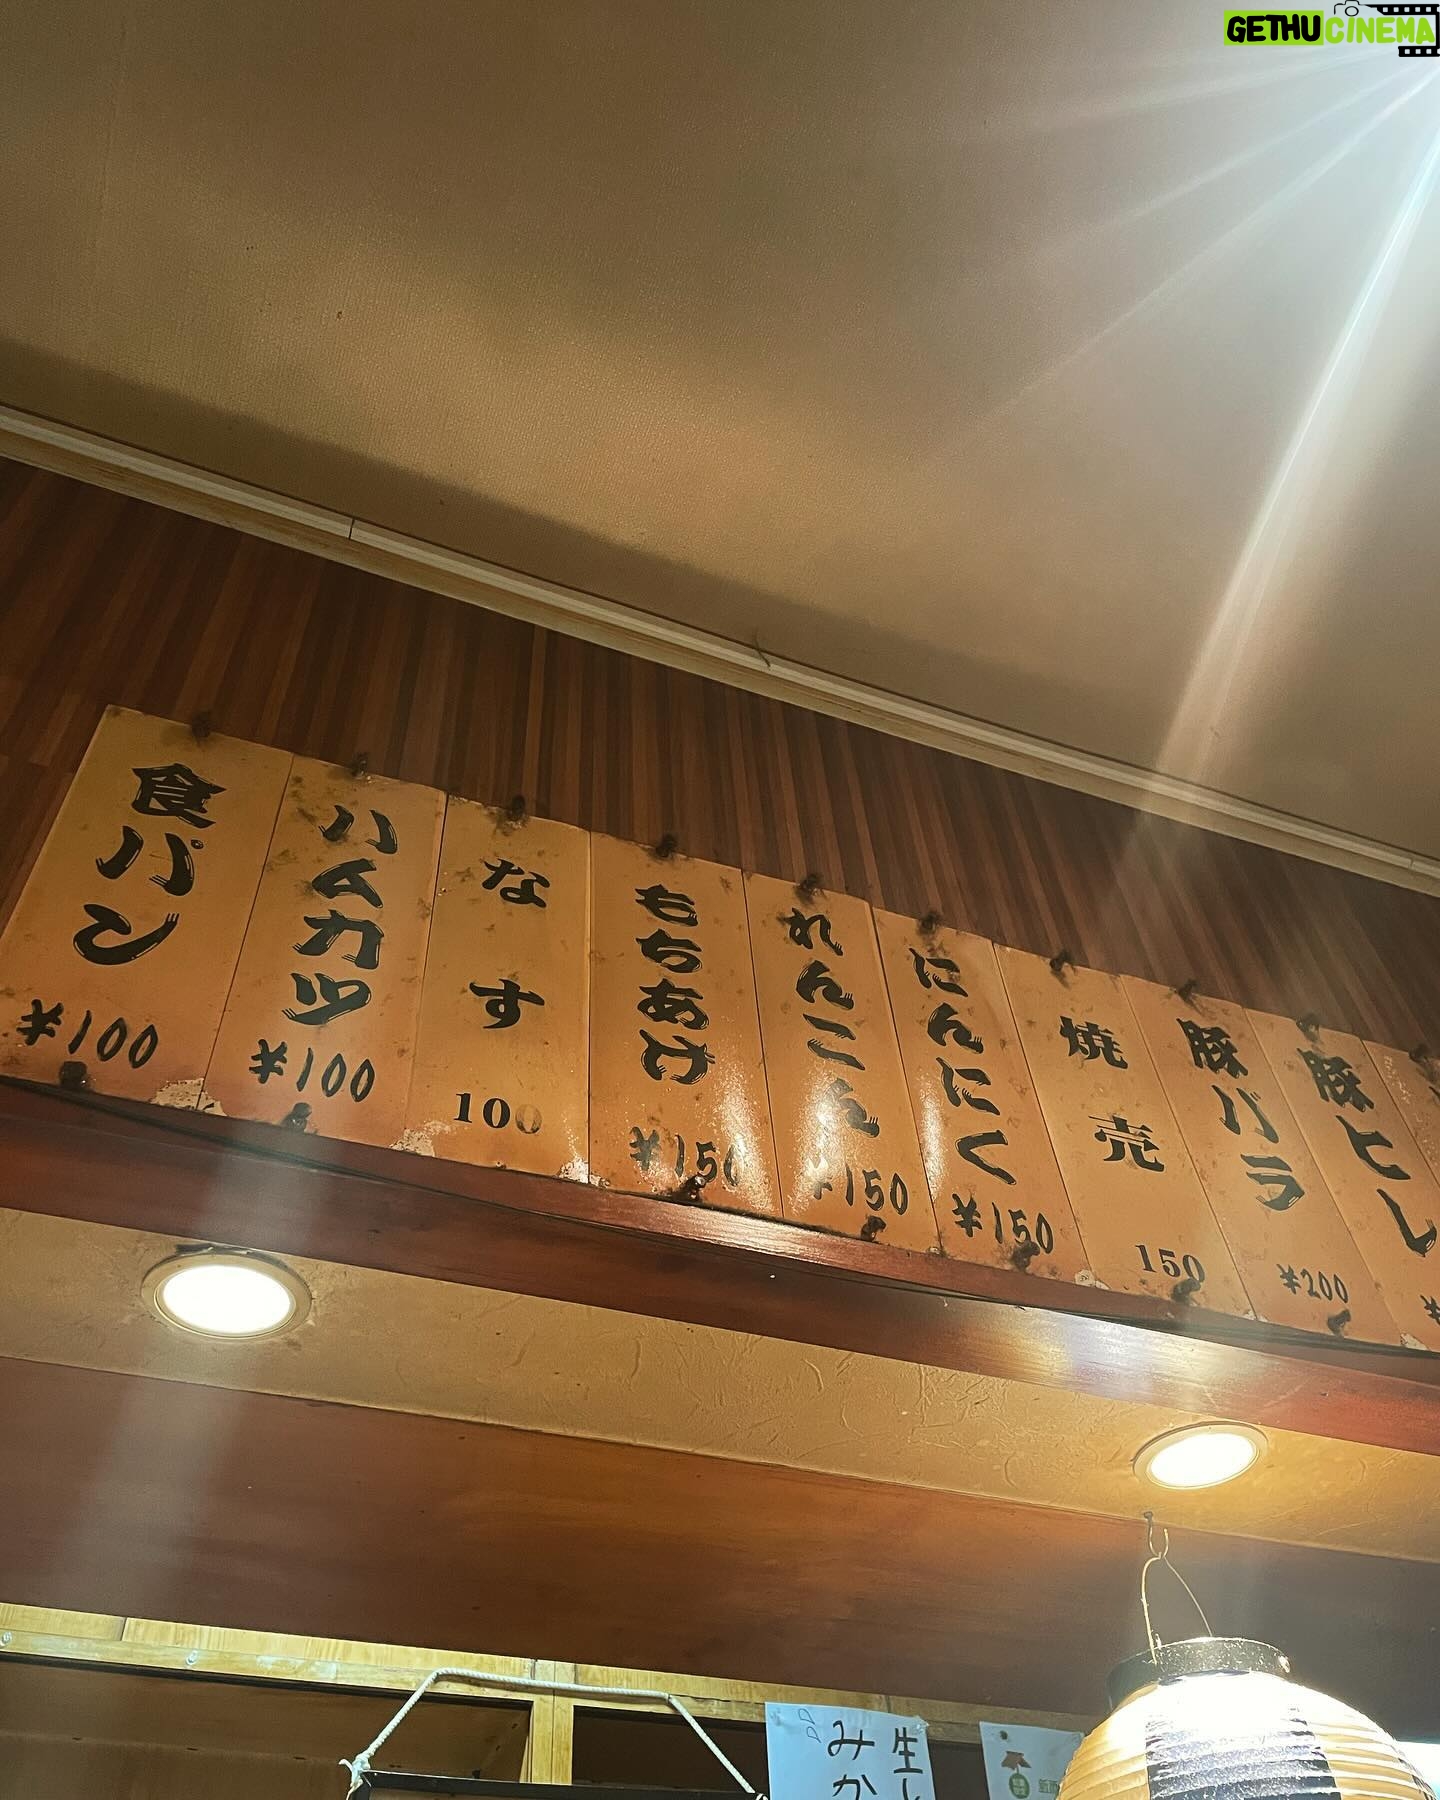 GETHUCINEMA
食パン
¥100
ハムカツ
¥100
なす
100
もちあげ
¥150
れんこん
¥150
にんにく
¥150
焼売
150
豚バラ
¥200
豚ヒレ
¥
生し
みか